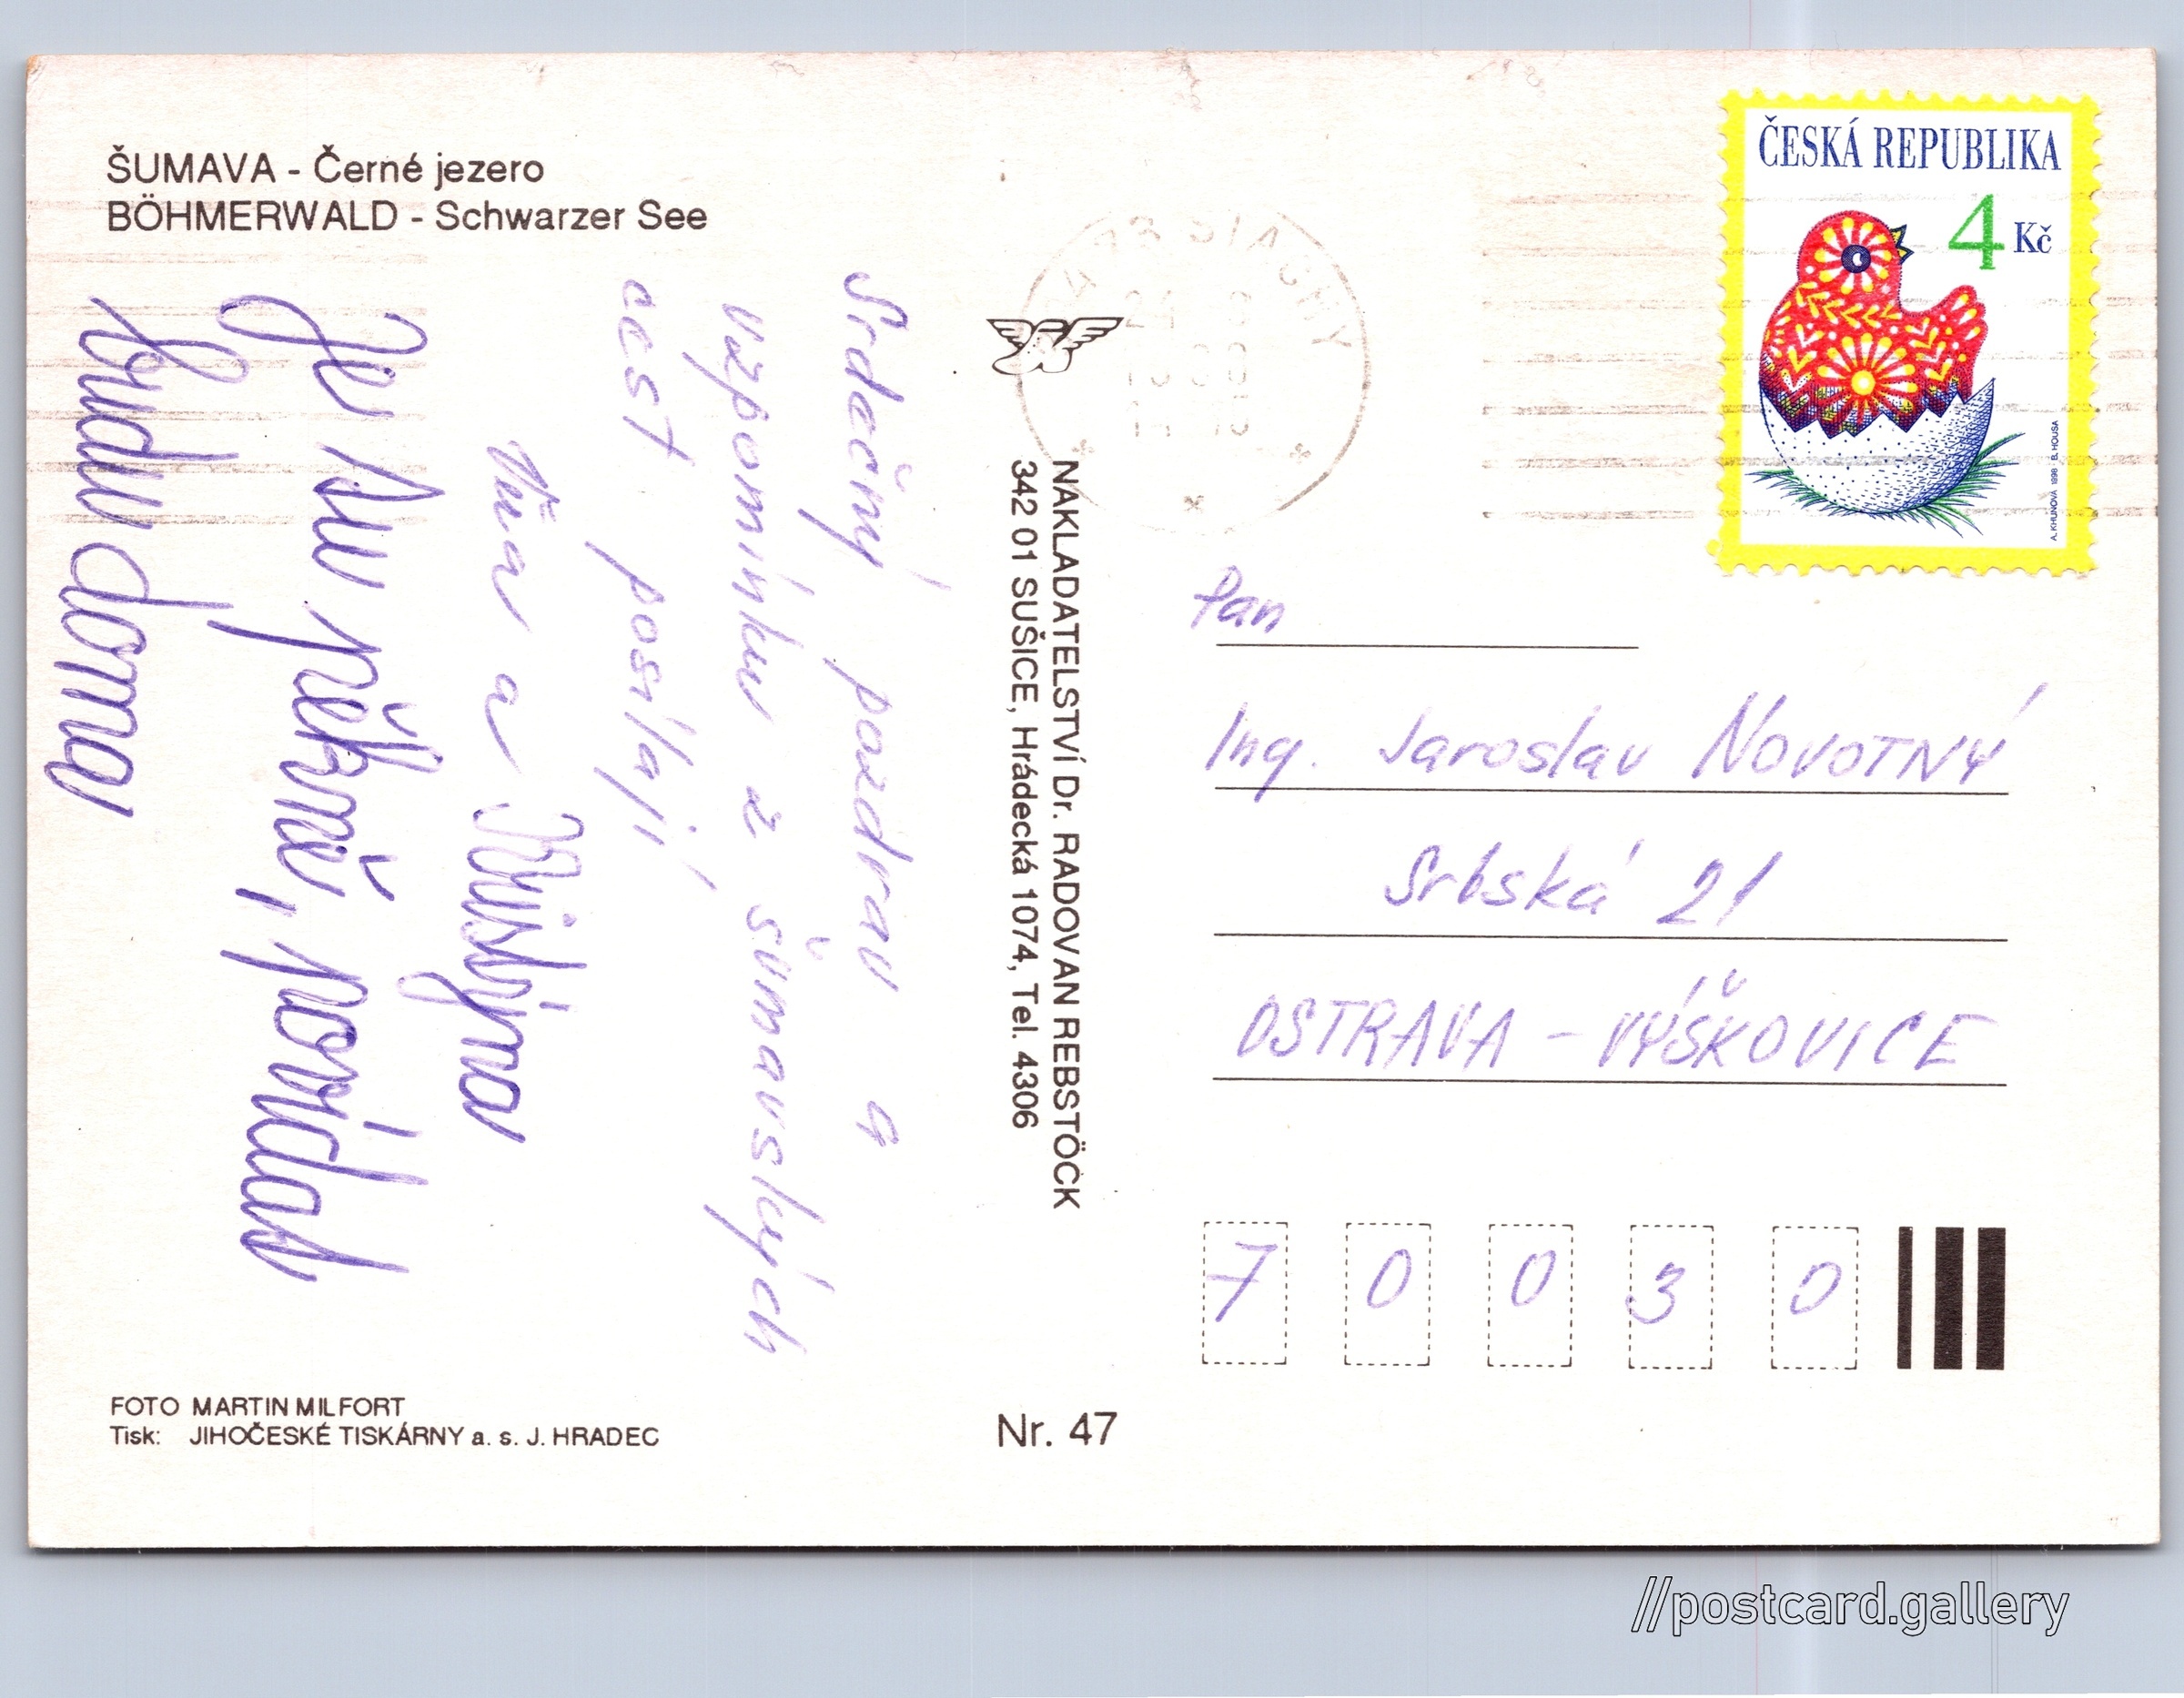 ŠUMAVA - Černé jezero
BÖHMERWALD - Schwarzer See
Srdečný pozdrav a
vzpomínku z šumavských
cest posílají
a Kristýna
Je tu pěkně, povídat
budu doma
NAKLADATELSTVÍ Dr. RADOVAN REBSTÖCK
342 01 SUŠICE, Hrádecká 1074, Tel. 4306
ČESKÁ REPUBLIKA
4 Kč
A. KHUNOVÁ 1998 B. HOUSA
Pan
Ing. Jaroslav NOVOTNÝ
Srbská 21
OSTRAVA - VÝŠKOVICE
7 0 0 3 0
FOTO MARTIN MILFORT
Tisk: JIHOČESKÉ TISKÁRNY a. s. J. HRADEC
Nr. 47
//postcard.gallery